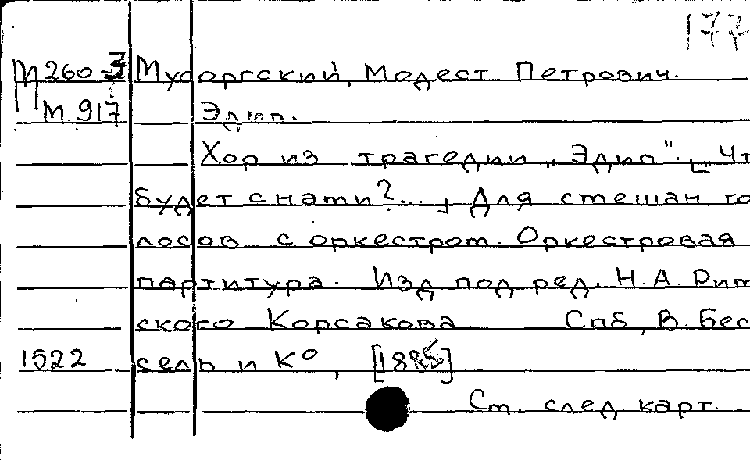 177
М260-3 Мусоргский, Модест Петрович.
М 917 Эдип.
Хор из трагедии „Эдип". [Чт
будет с нами?...] Для смешан го
лосов с оркестром. Оркестровая
партитура. Изд под ред. Н. А. Рим
ского Корсакова Спб, В. Бес
1522 сель и К°, [1885]
См. след карт.